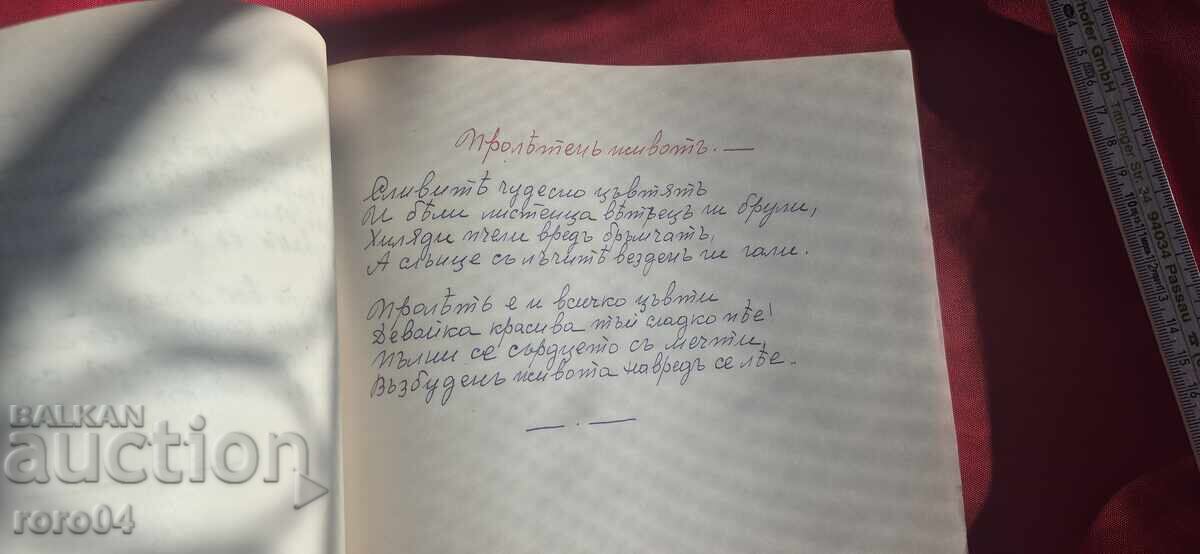 Пролѣтенъ животъ. —
Сливитѣ чудесно цъвтятъ
И бѣли листенца вѣтрецъ ги брули,
Хиляди пчели вредъ бръмчатъ,
А слънце съ лъчитѣ везденъ ги гали.
Пролѣть е и всичко цъвти
Девойка красива тъй сладко пѣе!
Пълни се сърдцето съ мечти,
Възбуденъ живота навредъ се лѣе.
— . —
hofer GmbH Traunge Str 34 94034 Passau
4 5 6 7 8 9 10 11 12 13 14 15 16
BALKAN
auction
roro04